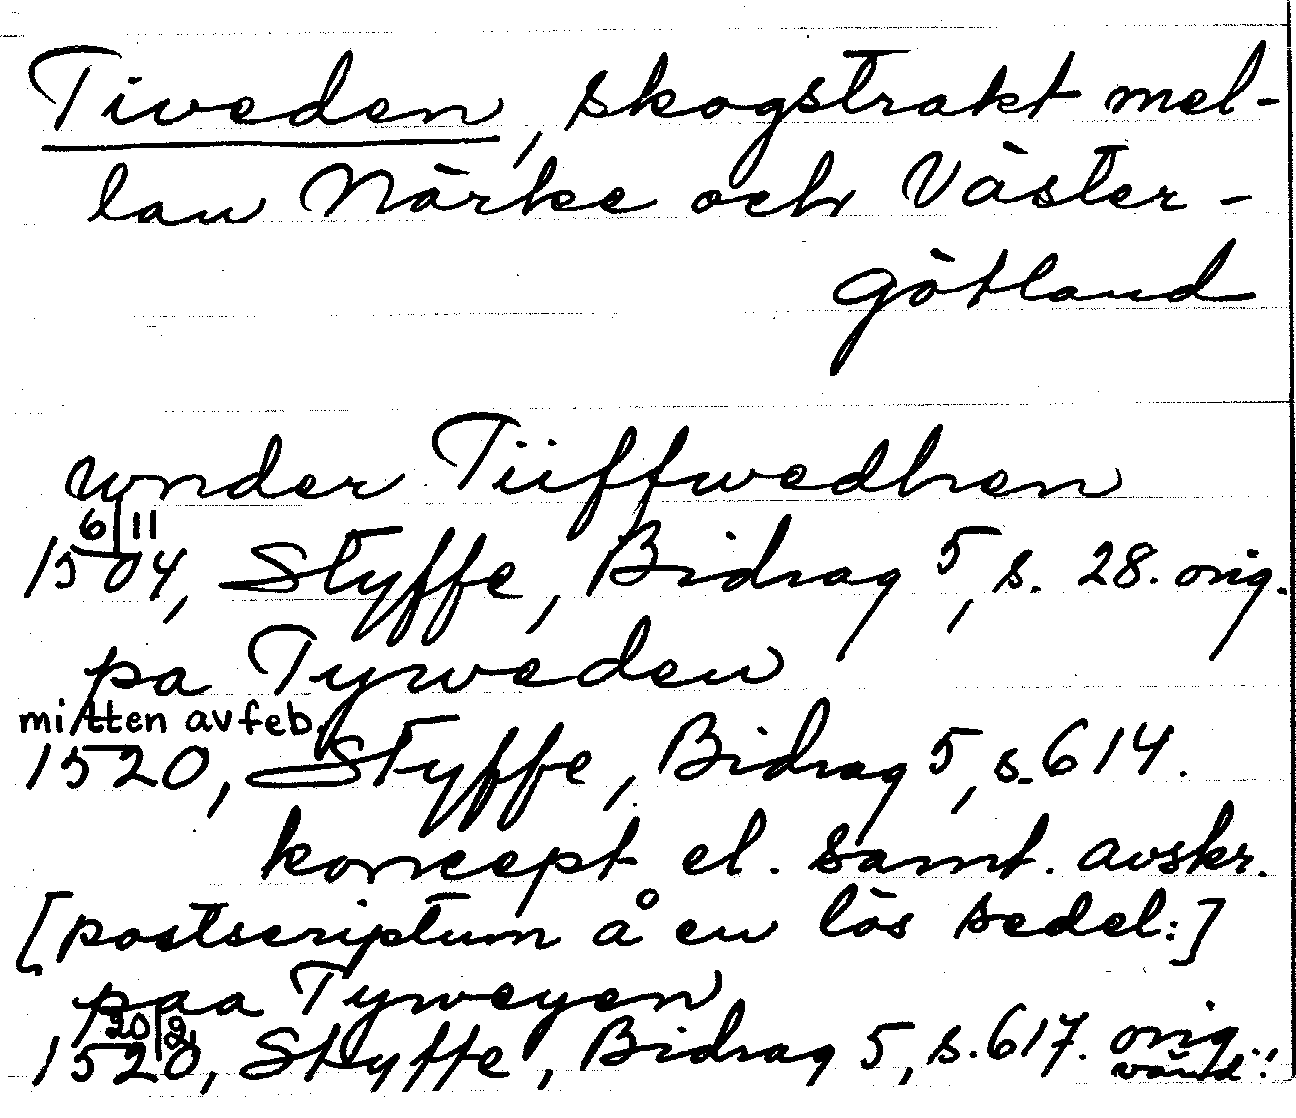 Tiveden, skogstrakt mel-
lan Närke och Väster-
götland
wnder Tiiffwedhen
6/11
1504, Styffe, Bidrag 5, s. 28. orig.
pa Tyweden
mitten av feb.
1520, Styffe, Bidrag 5, s. 614.
koncept el. samt. avskr.
[postscriptum å en lös sedel:]
paa Tyweyen
20/2
1520, Styffe, Bidrag 5, s. 617. orig.
vänd!